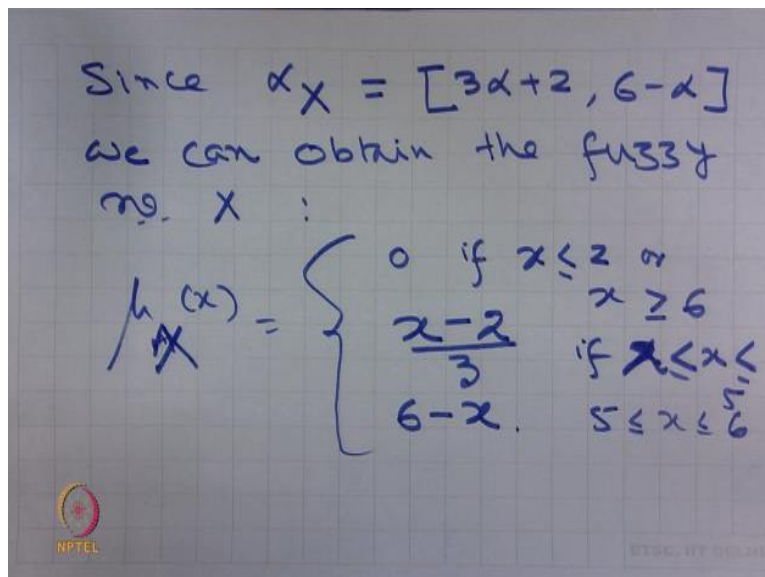 Since αX = [3α+2, 6-α]
we can obtain the fuzzy
no. X :
μX(x) = { 0 if x ≤ 2 or
x ≥ 6
x-2/3 if x ≤ x ≤
5
6-x. 5 ≤ x ≤ 6
NPTEL
ETSC, IIT DELHI